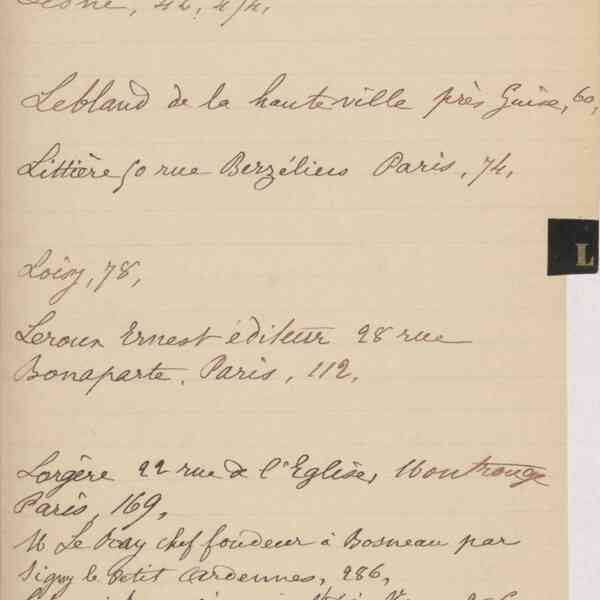 42, 
Lebland de la hauteville près Guise, 60,
Littière 50 rue Berzélius Paris, 74,
L
Loisy, 78,
Leroux Ernest éditeur 28 rue
Bonaparte, Paris, 112,
Lorgère 22 rue de l'Eglise, Montrouge
Paris, 169,
M Le Ray chef fondeur à Bosneau par
Signy le Petit Ardennes, 286,